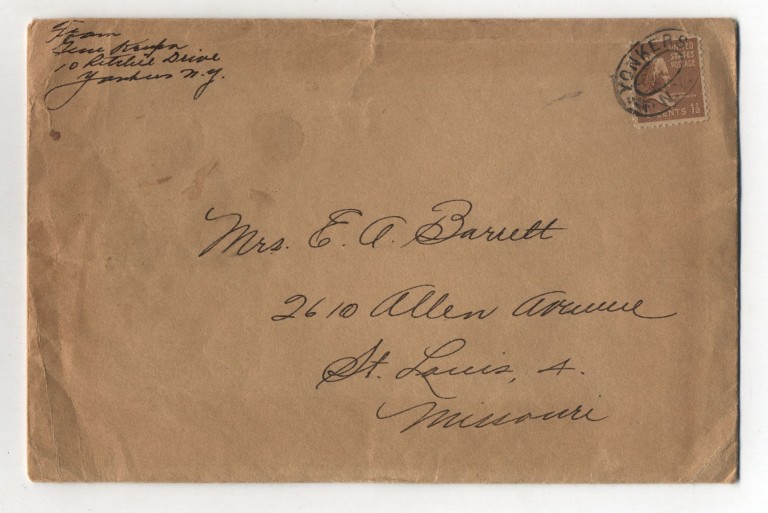 From
Gene Krupa
10 Ritchie Drive
Yonkers N.Y.
YONKERS
N.Y.
UNITED
STATES
POSTAGE
CENTS 1½
Mrs. E. A. Barrett
2610 Allen Avenue
St. Louis, 4.
Missouri